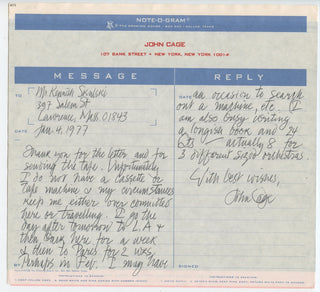 NOTE-O-GRAM®
JOHN CAGE
107 BANK STREET • NEW YORK, NEW YORK 10014
MESSAGE
REPLY
TO
Mr. Kenneth
397 Salem St
Lawrence, Mass. 01843
DATE Jan. 4, 1977
Thank you for the letter and for
sending the tape. Unfortunately
I do not have a cassette or
tape machine & my circumstances
keep me either going committed
here or travelling. I go the
day after tomorrow to L.A. &
then back here for a week
& then to Paris for 2 wks.
Perhaps in Feb. I may have
DATE
an occasion to search
out a machine, etc. (I
am also busy writing
a longish book and 24
pts — actually 8 for
3 different sized orchestras
With best wishes,
John Cage
SIGNED